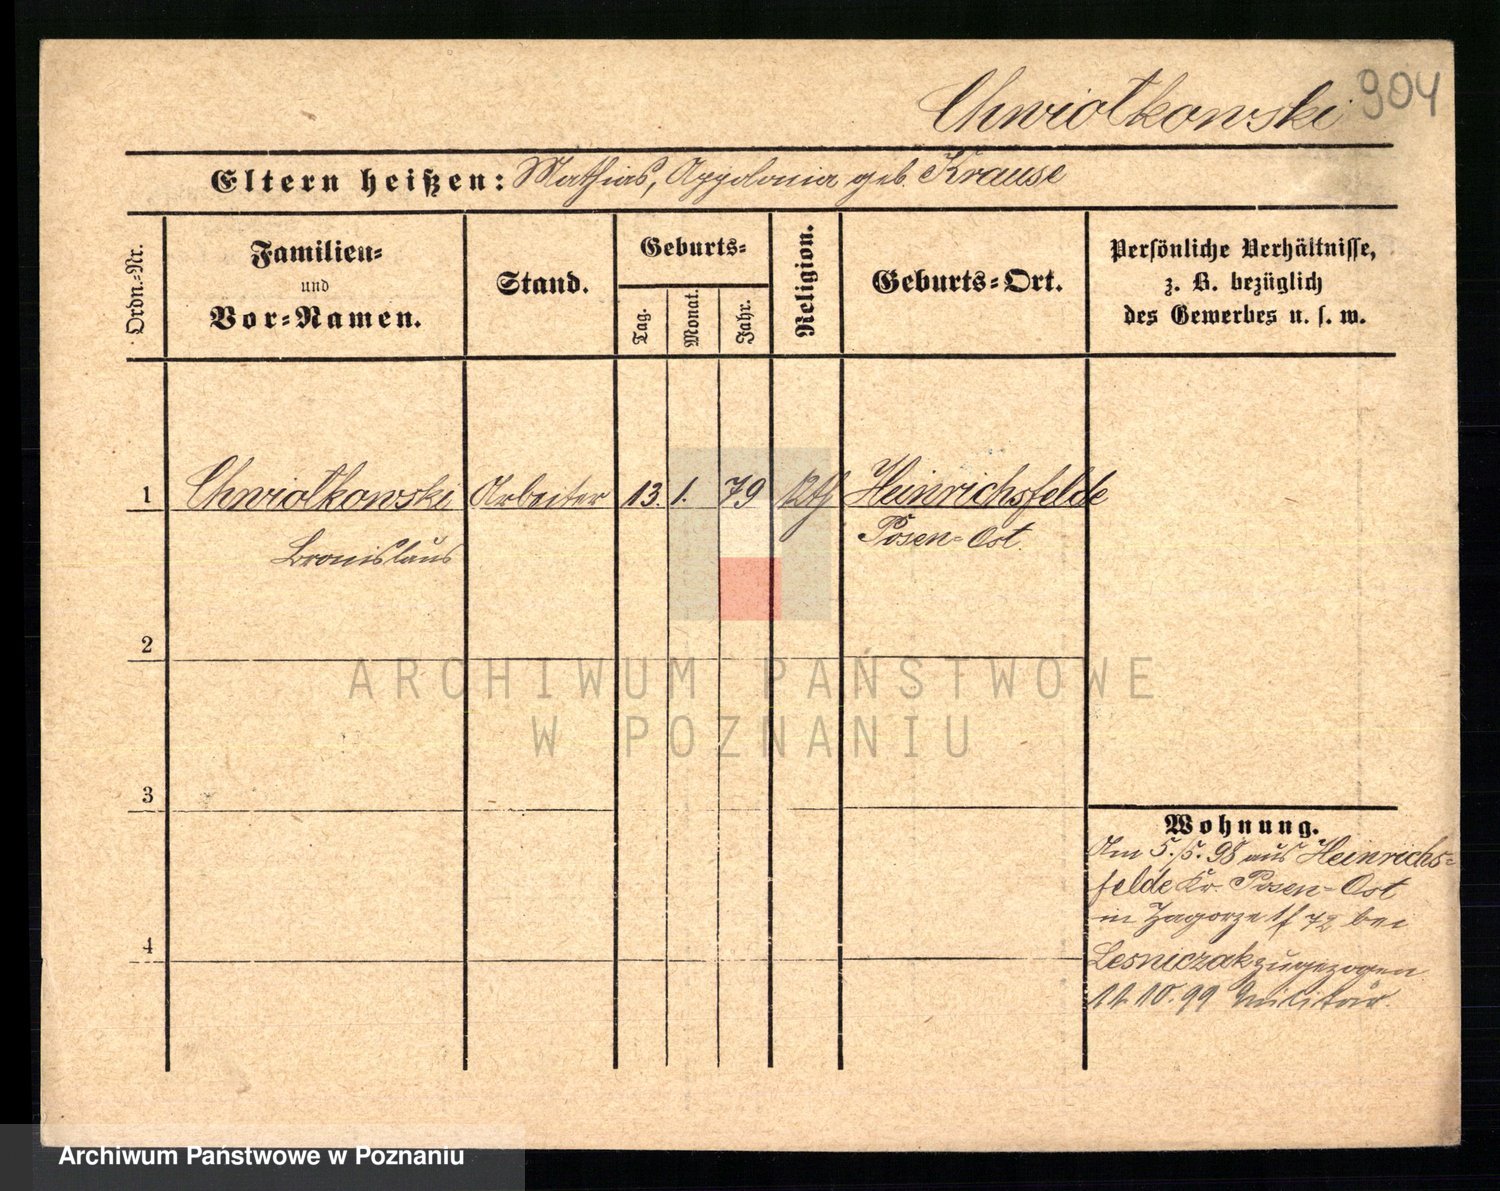 Chwiolkowski 904
Eltern heißen: Mathias, Appolonia geb. Krause
Ordn.-Nr.
Familien-
und
Vor-Namen.
Stand.
Geburts-
Tag.
Monat.
Jahr.
Religion.
Geburts-Ort.
Persönliche Verhältnisse,
z. B. bezüglich
des Gewerbes u. s. w.
1 Chwiolkowski Arbeiter 13. 1. 79 Kth Heinrichsfelde
Bronislaus Posen-Ost.
2
ARCHIWUM PAŃSTWOWE
W POZNANIU
3
Wohnung.
Am 5./5. 98 aus Heinrichs-
felde Kr. Posen-Ost
in Zagorze 72 bei
Lesniczak zugezogen
4
11.10.99 Militär.
Archiwum Państwowe w Poznaniu